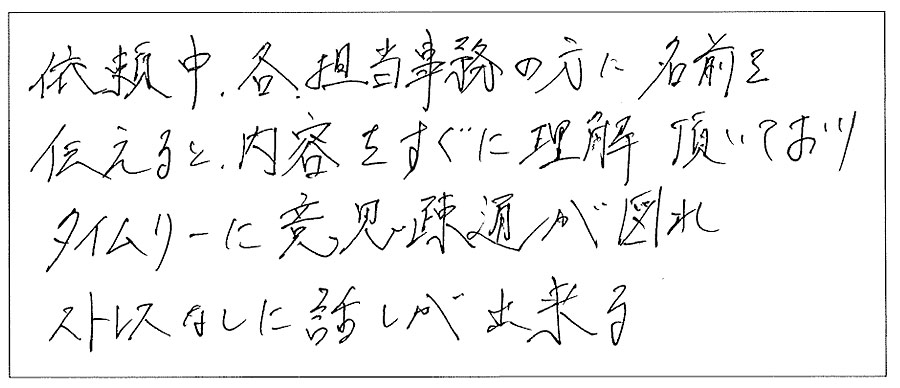 依頼中、各、担当事務の方に名前を
伝えると、内容をすぐに理解頂いており
タイムリーに意見疎通が図れ
ストレスなしに話しが出来る